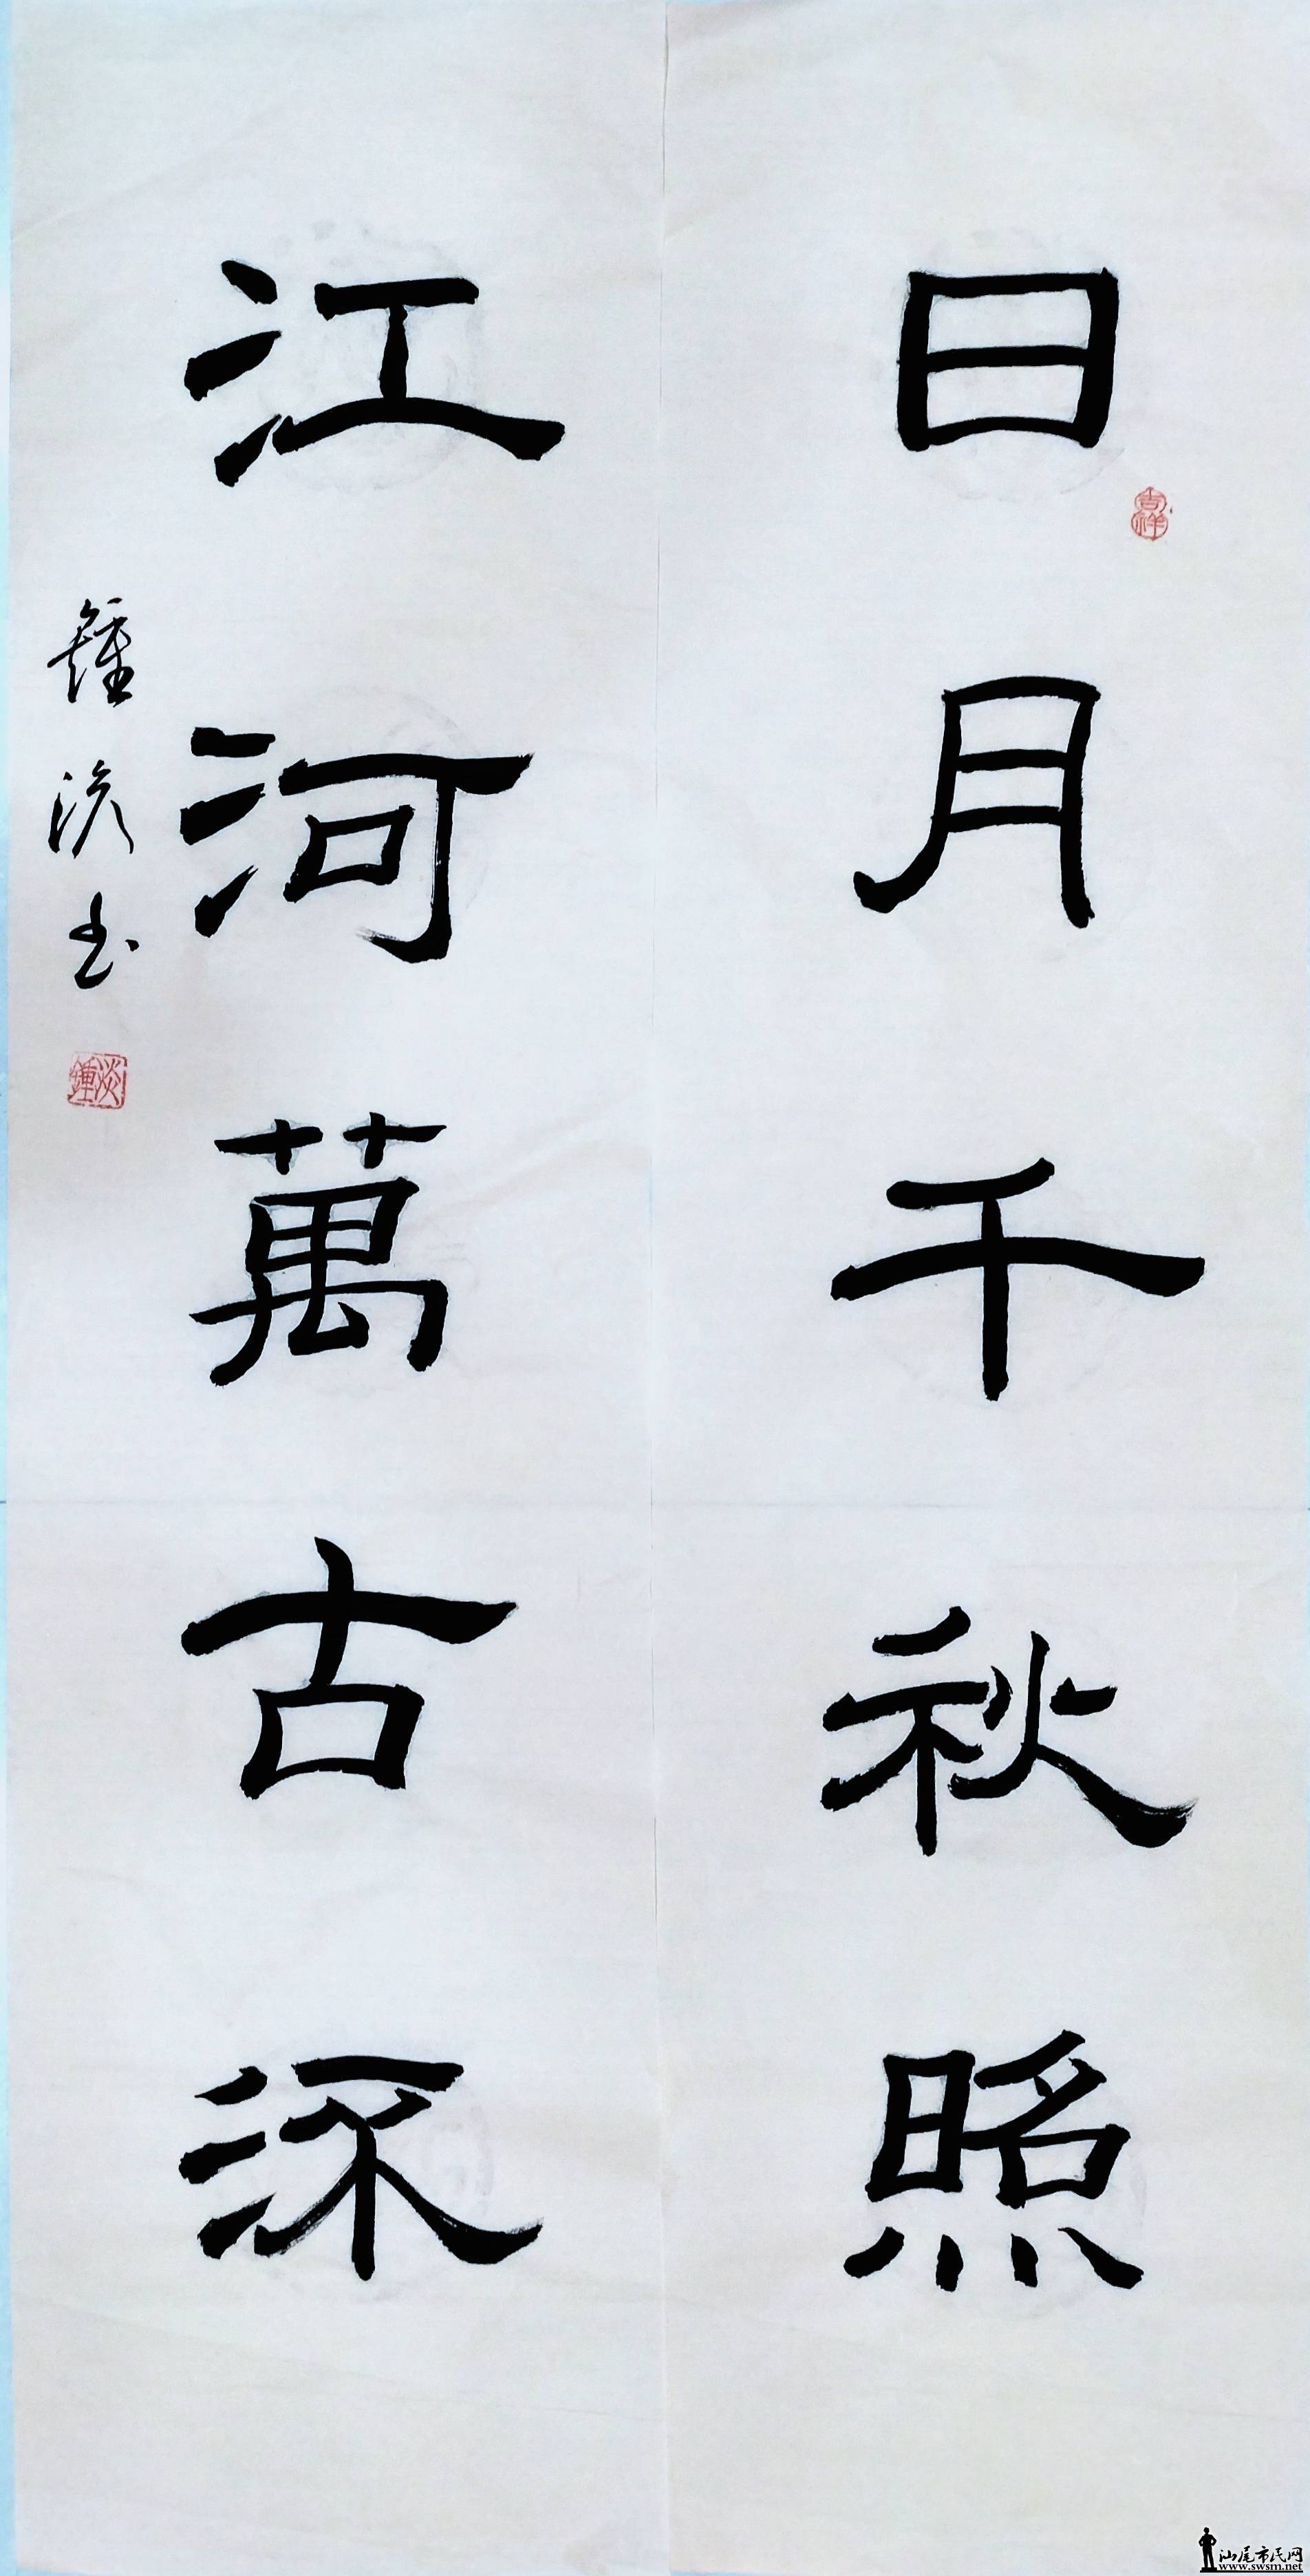 日月千秋照
吉祥
江河萬古㳅
鍾淡书
淡鍾
汕尾市民网
www.swsm.net